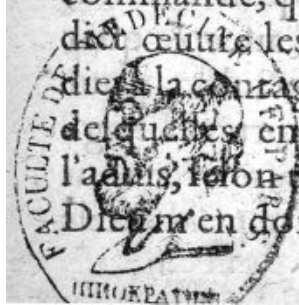 commande, q
dict œuure les
diers la contag
desquelles en
l'aduis, selon
Dieu m'en do
FACULTE DE MEDECINE
ΙΠΠΟΚΡΑΤΗΣ